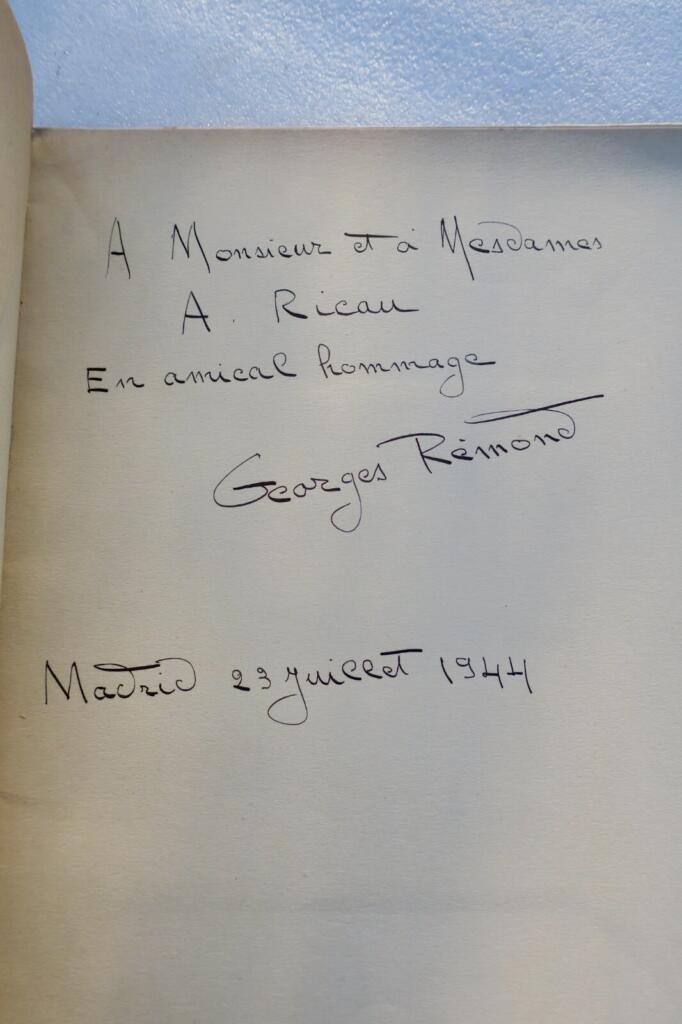 A Monsieur et à Mesdames
A. Ricau
En amical hommage
Georges Rémond
Madrid 23 juillet 1944